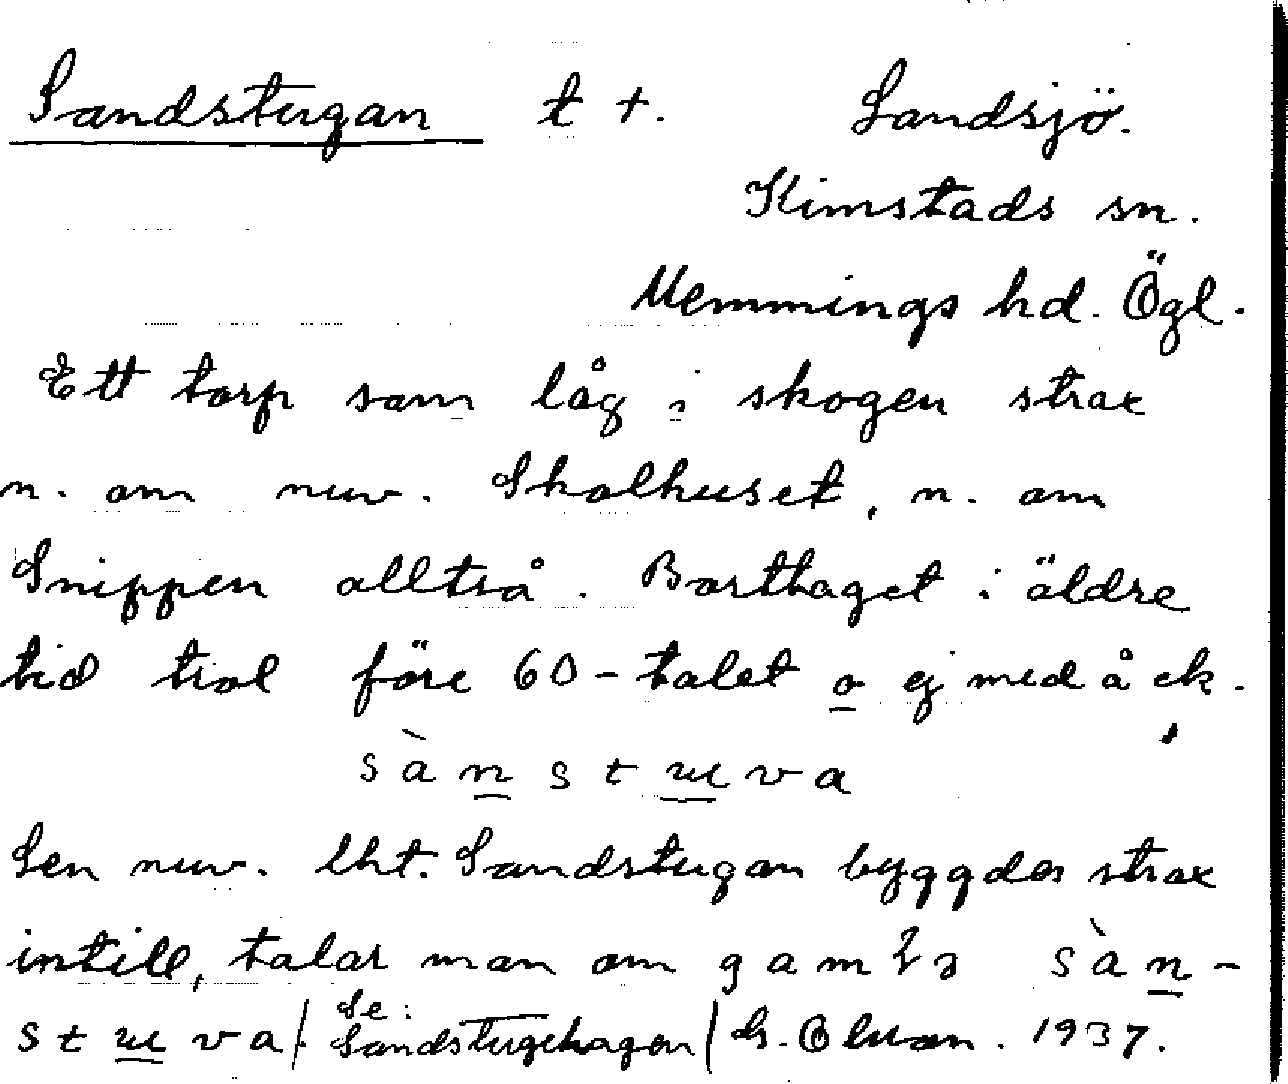 Sandstugan t +. Landsjö.
Kimstads sn.
Memmings hd. Ögl.
Ett torp som låg i skogen strax
n. om nuv. Skolhuset, n. om
Snippen alltså. Borttaget i äldre
tid trol före 60-talet o ej med å ek.
sànstuva
Sen nuv. lht. Sandstugan byggdes strax
intill, talar man om gamla sàn-
stuva/. Se: Sandstugehagen/